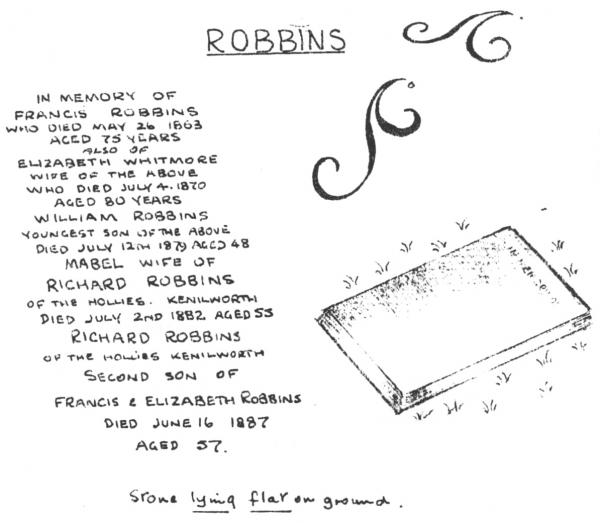 ROBBINS
IN MEMORY OF
FRANCIS ROBBINS
WHO DIED MAY 26 1863
AGED 75 YEARS
ALSO OF
ELIZABETH WHITMORE
WIFE OF THE ABOVE
WHO DIED JULY 4. 1870
AGED 80 YEARS
WILLIAM ROBBINS
YOUNGEST SON OF THE ABOVE
DIED JULY 12TH 1879 AGED 48
MABEL WIFE OF
RICHARD ROBBINS
OF THE HOLLIES. KENILWORTH
DIED JULY 2ND 1882 AGED 53
RICHARD ROBBINS
OF THE HOLLIES KENILWORTH
SECOND SON OF
FRANCIS & ELIZABETH ROBBINS
DIED JUNE 16 1887
AGED 57.
Stone lying flat on ground.